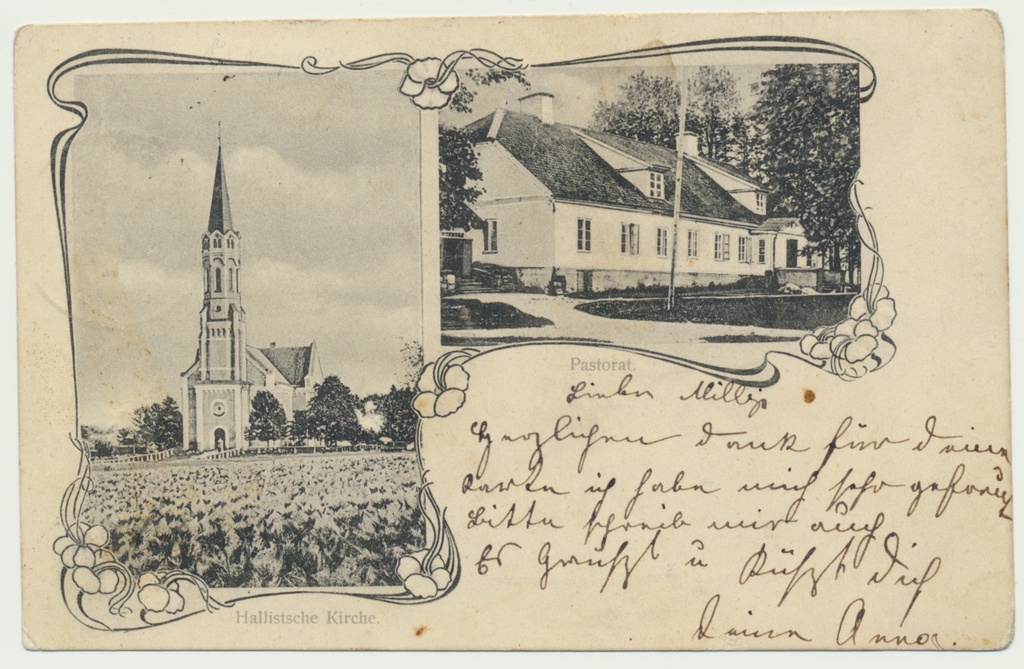 Pastorat.
Lieber Willy
Herzlichen Dank für deine
Karte ich habe mich sehr gefreut
Bitte schreib mir auch
Es Grüßt u Küßt dich
Deine Anna.
Hallistsche Kirche.